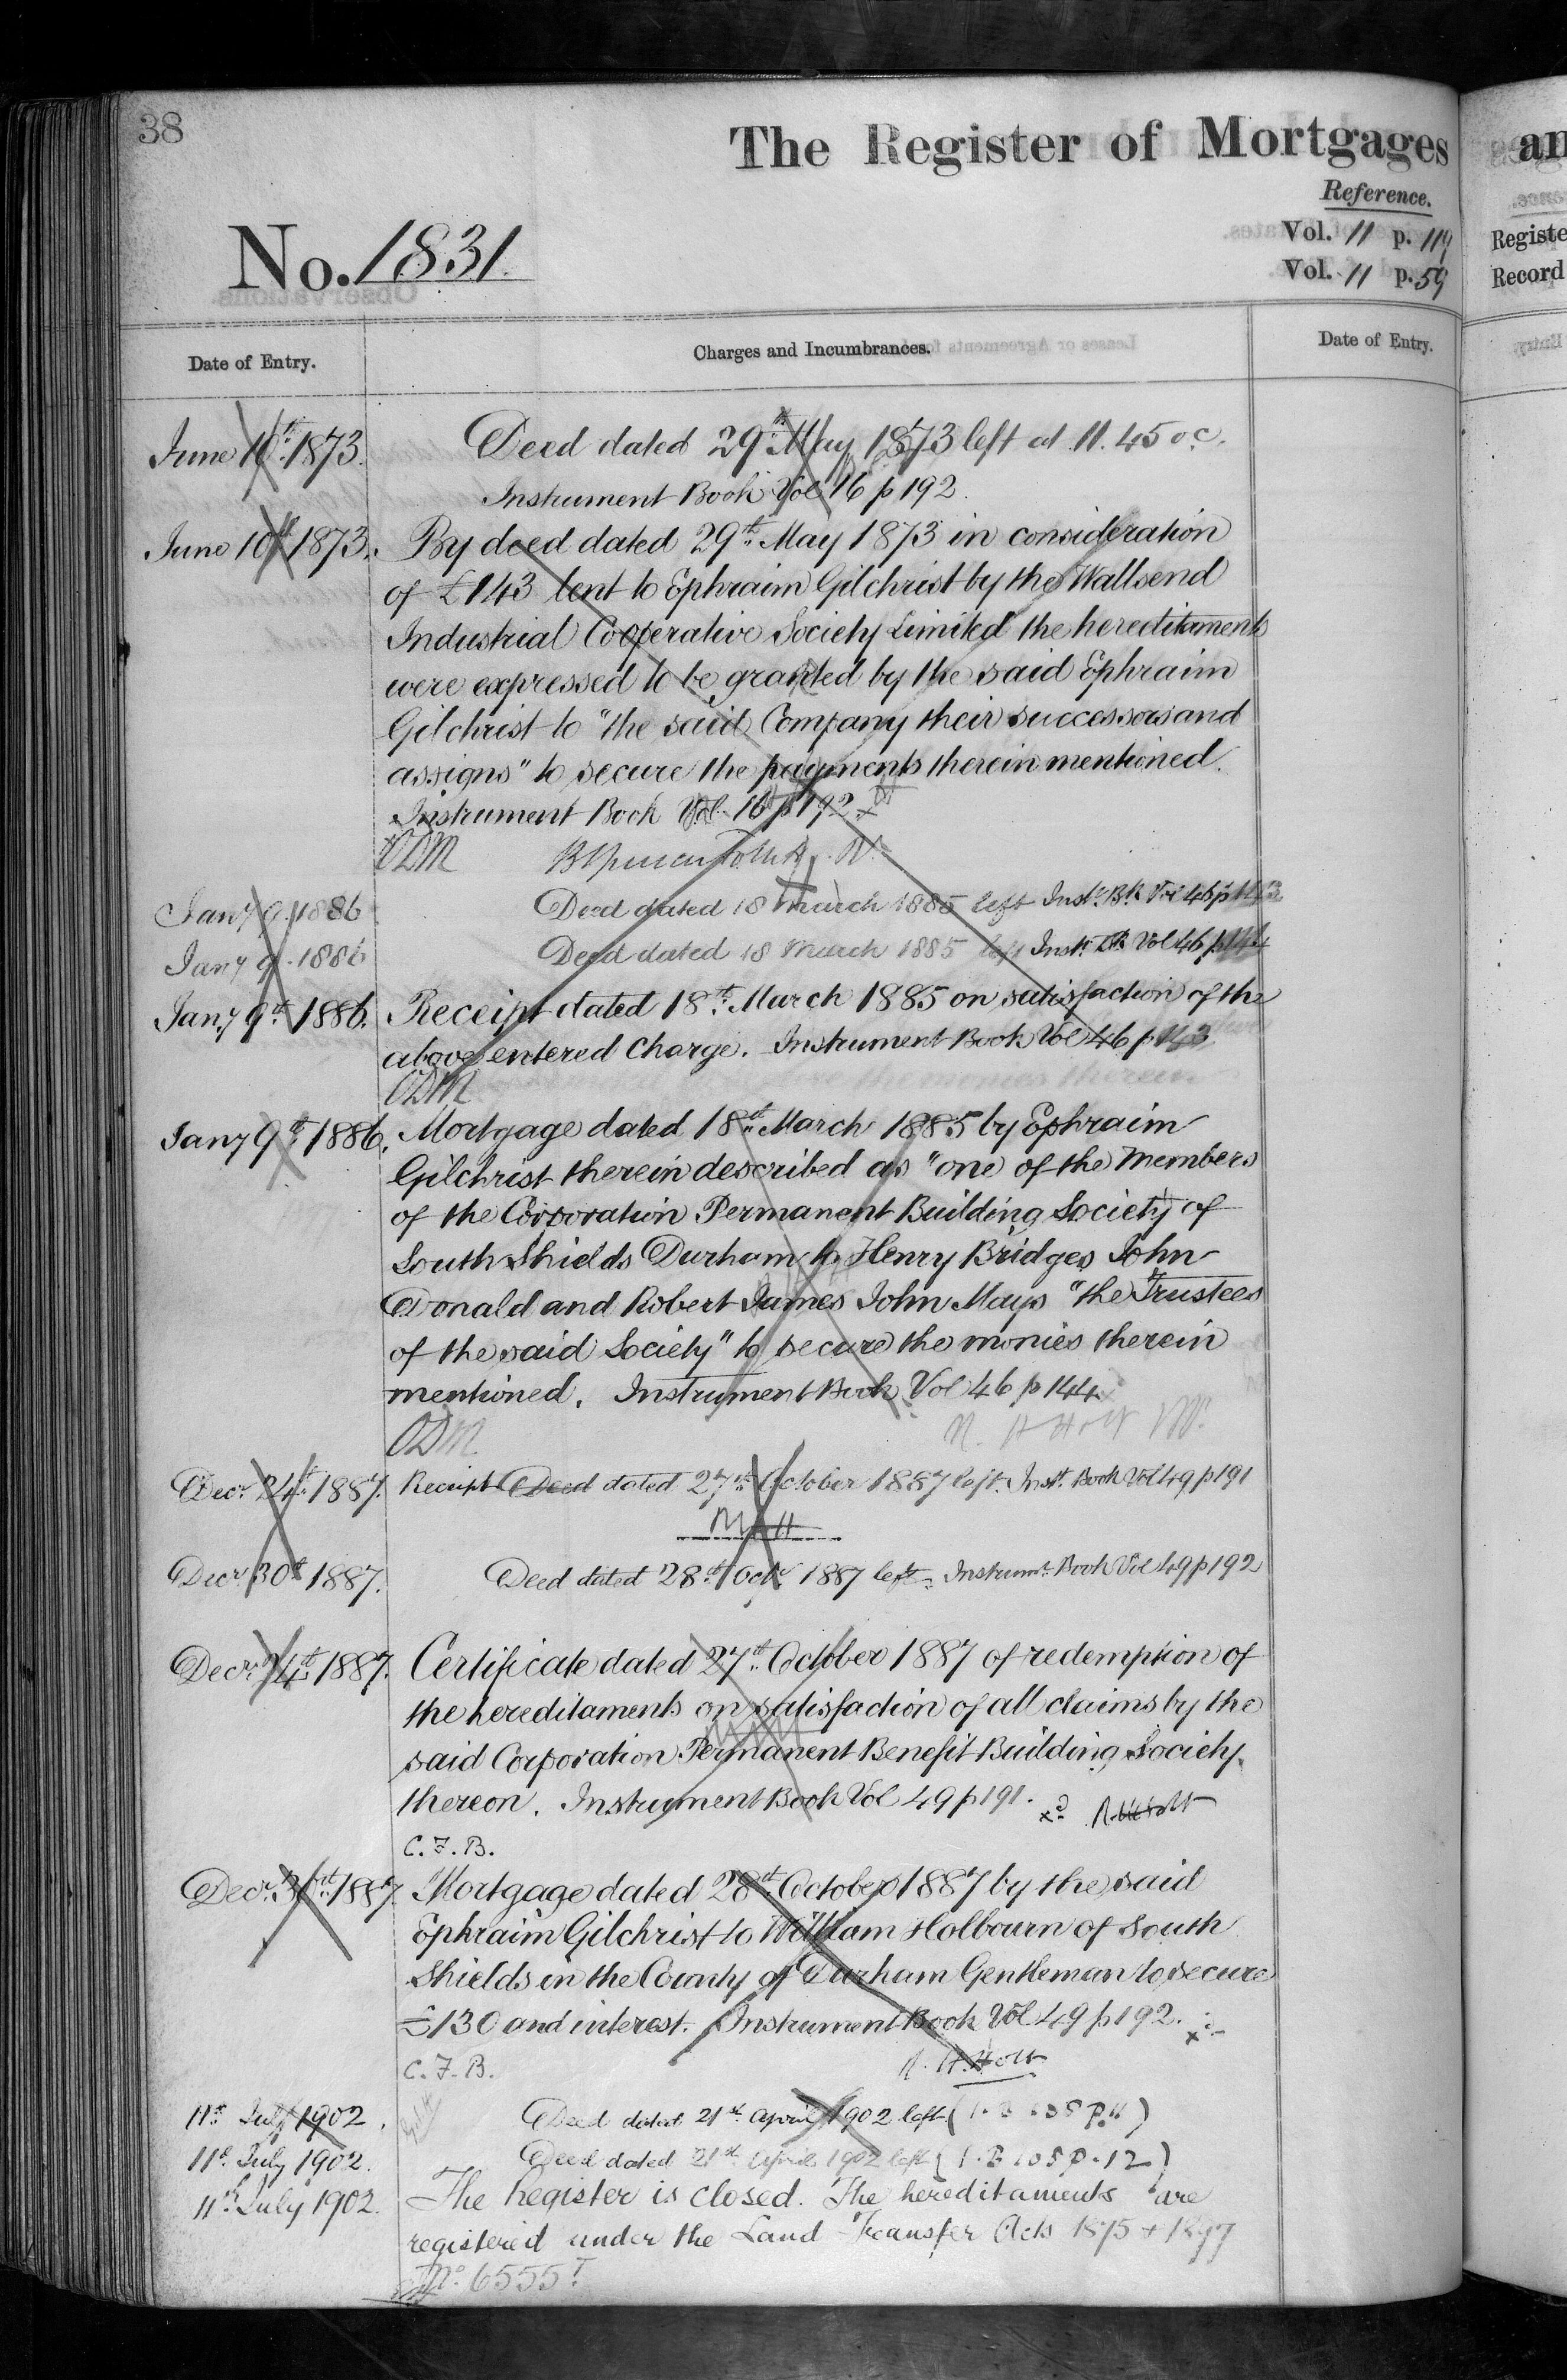 38
The Register of Mortgages
an
Reference.
Vol. 11 p. 119
Registe
No. 1831.
Vol. 11 p. 59
Record
Date of Entry.
Charges and Incumbrances.
Date of Entry.
June 10th 1873. Deed dated 29th May 1873 left at 11.45 oc.
Instrument Book Vol 16 p 192.
June 10th 1873. By deed dated 29th May 1873 in consideration
of £143 lent to Ephraim Gilchrist by the Wallsend
Industrial Cooperative Society Limited the hereditaments
were expressed to be granted by the said Ephraim
Gilchrist to "the said Company their successors and
assigns" to secure the payments therein mentioned.
Instrument Book Vol. 16 p 192
ODM
Jany 9. 1886 Deed dated 18 March 1885 left Inst. Bk Vol 46 p 143
Jany 9. 1886 Deed dated 18 March 1885 left Inst. Bk Vol 46 p 144
Jany 9th 1886. Receipt dated 18th March 1885 on satisfaction of the
above entered Charge. Instrument Book Vol 46 p 143
ODM
Jany 9th 1886. Mortgage dated 18th March 1885 by Ephraim
Gilchrist therein described as "one of the Members
of the Corporation Permanent Building Society of
South Shields Durham to Henry Bridges John
Donald and Robert James John Mays "the Trustees
of the said Society" to secure the monies therein
mentioned. Instrument Book Vol 46 p 144
ODM
Decr 24th 1887. Receipt Deed dated 27th October 1887 left. Inst. Book Vol 49 p 191
Decr 30th 1887. Deed dated 28th Octr 1887 left Instrumt Book Vol 49 p 192
Decr 24th 1887. Certificate dated 27th October 1887 of redemption of
the hereditaments on satisfaction of all claims by the
said Corporation Permanent Benefit Building Society
thereon. Instrument Book Vol 49 p 191.
C.F.B.
Decr 31st 1887 Mortgage dated 28th October 1887 by the said
Ephraim Gilchrist to William Holbourn of South
Shields in the County of Durham Gentleman to secure
£130 and interest. Instrument Book Vol 49 p 192.
C.F.B. R. H. Holt
11th July 1902. Deed dated 21st April 1902 left (I.B 105 P.11)
11th July 1902. Deed dated 21st April 1902 left (I.B 105 P.12)
11th July 1902. The Register is closed. The hereditaments are
registered under the Land Transfer Acts 1875 + 1897
No. 6555